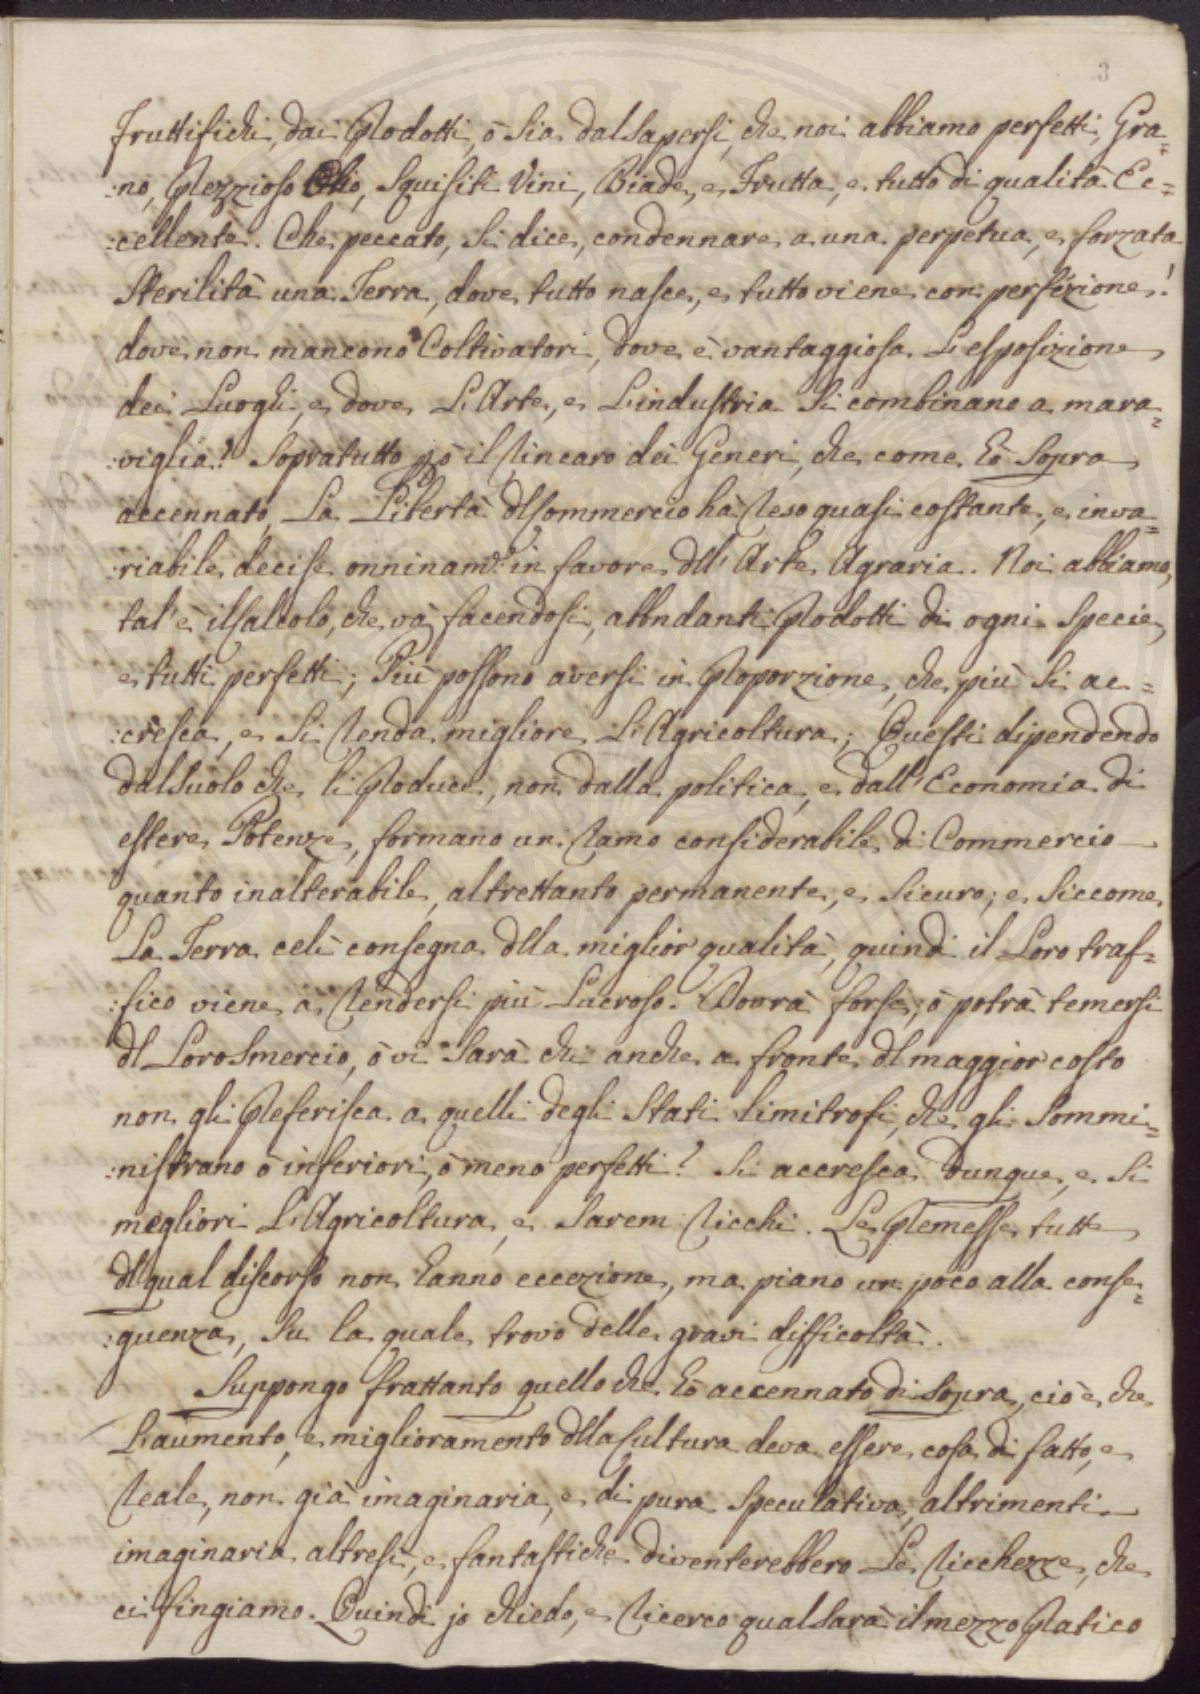 3
fruttifichi, dai Prodotti, ò sia dal sapersi, che noi abbiamo perfetti, Gra=
:no, Prezzioso Olio, Squisiti Vini, Biade, e Frutta, e tutto di qualità Ec=
:cellente. Che peccato, si dice, condennare a una perpetua, e forzata
Sterilità una Terra, dove tutto nasce, e tutto viene con perfezione!
dove non mancono Coltivatori, dove è vantaggiosa L'esposizione
dei Luoghi, e dove L'Arte, e L'industria si combinano a mara=
:viglia! Sopratutto pò il Rincaro dei Generi, che come hò sopra
accennato, La Libertà dl Commercio hà Reso quasi costante, e inva=
:riabile decise onninamte in favore dll' Arte Agraria. Noi abbiamo,
tal' è il Calcolo, che và facendosi, abbndanti Prodotti di ogni specie,
e tutti perfetti; Più possono aversi in Proporzione, che più si ac=
:cresca, e si Renda migliore L'Agricoltura; Questi dipendendo
dal Suolo che li Produce, non dalla politica, e dall' Economia di
estere Potenze, formano un Ramo considerabile di Commercio
quanto inalterabile, altrettanto permanente, e sicuro; e siccome
La Terra celi consegna dlla miglior qualità, quindi il Loro traf=
:fico viene à Rendersi più Lucroso. Dovrà forse, ò potrà temersi
dl Loro Smercio, ò vi sarà chi anche a fronte dl maggior costo
non gli Preferisca a quelli degli Stati limitrofi, che gli sommi=
:nistrano ò inferiori, ò meno perfetti? Si accresca dunque, e si
megliori L'Agricoltura, e sarem Ricchi. Le Premesse tutte
dl qual discorso non hanno eccezione, ma piano un poco alla conse=
:guenza, su la quale trovo delle gravi difficoltà.
Suppongo frattanto quello che hò accennato di sopra, cioè che
L'aumento, e miglioramento dlla Cultura deva essere cosa di fatto, e
Reale, non già imaginaria, e di pura speculativa, altrimenti
imaginaria altresì, e fantastiche diventerebbero Le Ricchezze, che
ci fingiamo. Quindi jo chiedo, e Ricerco qual sarà il mezzo Pratico